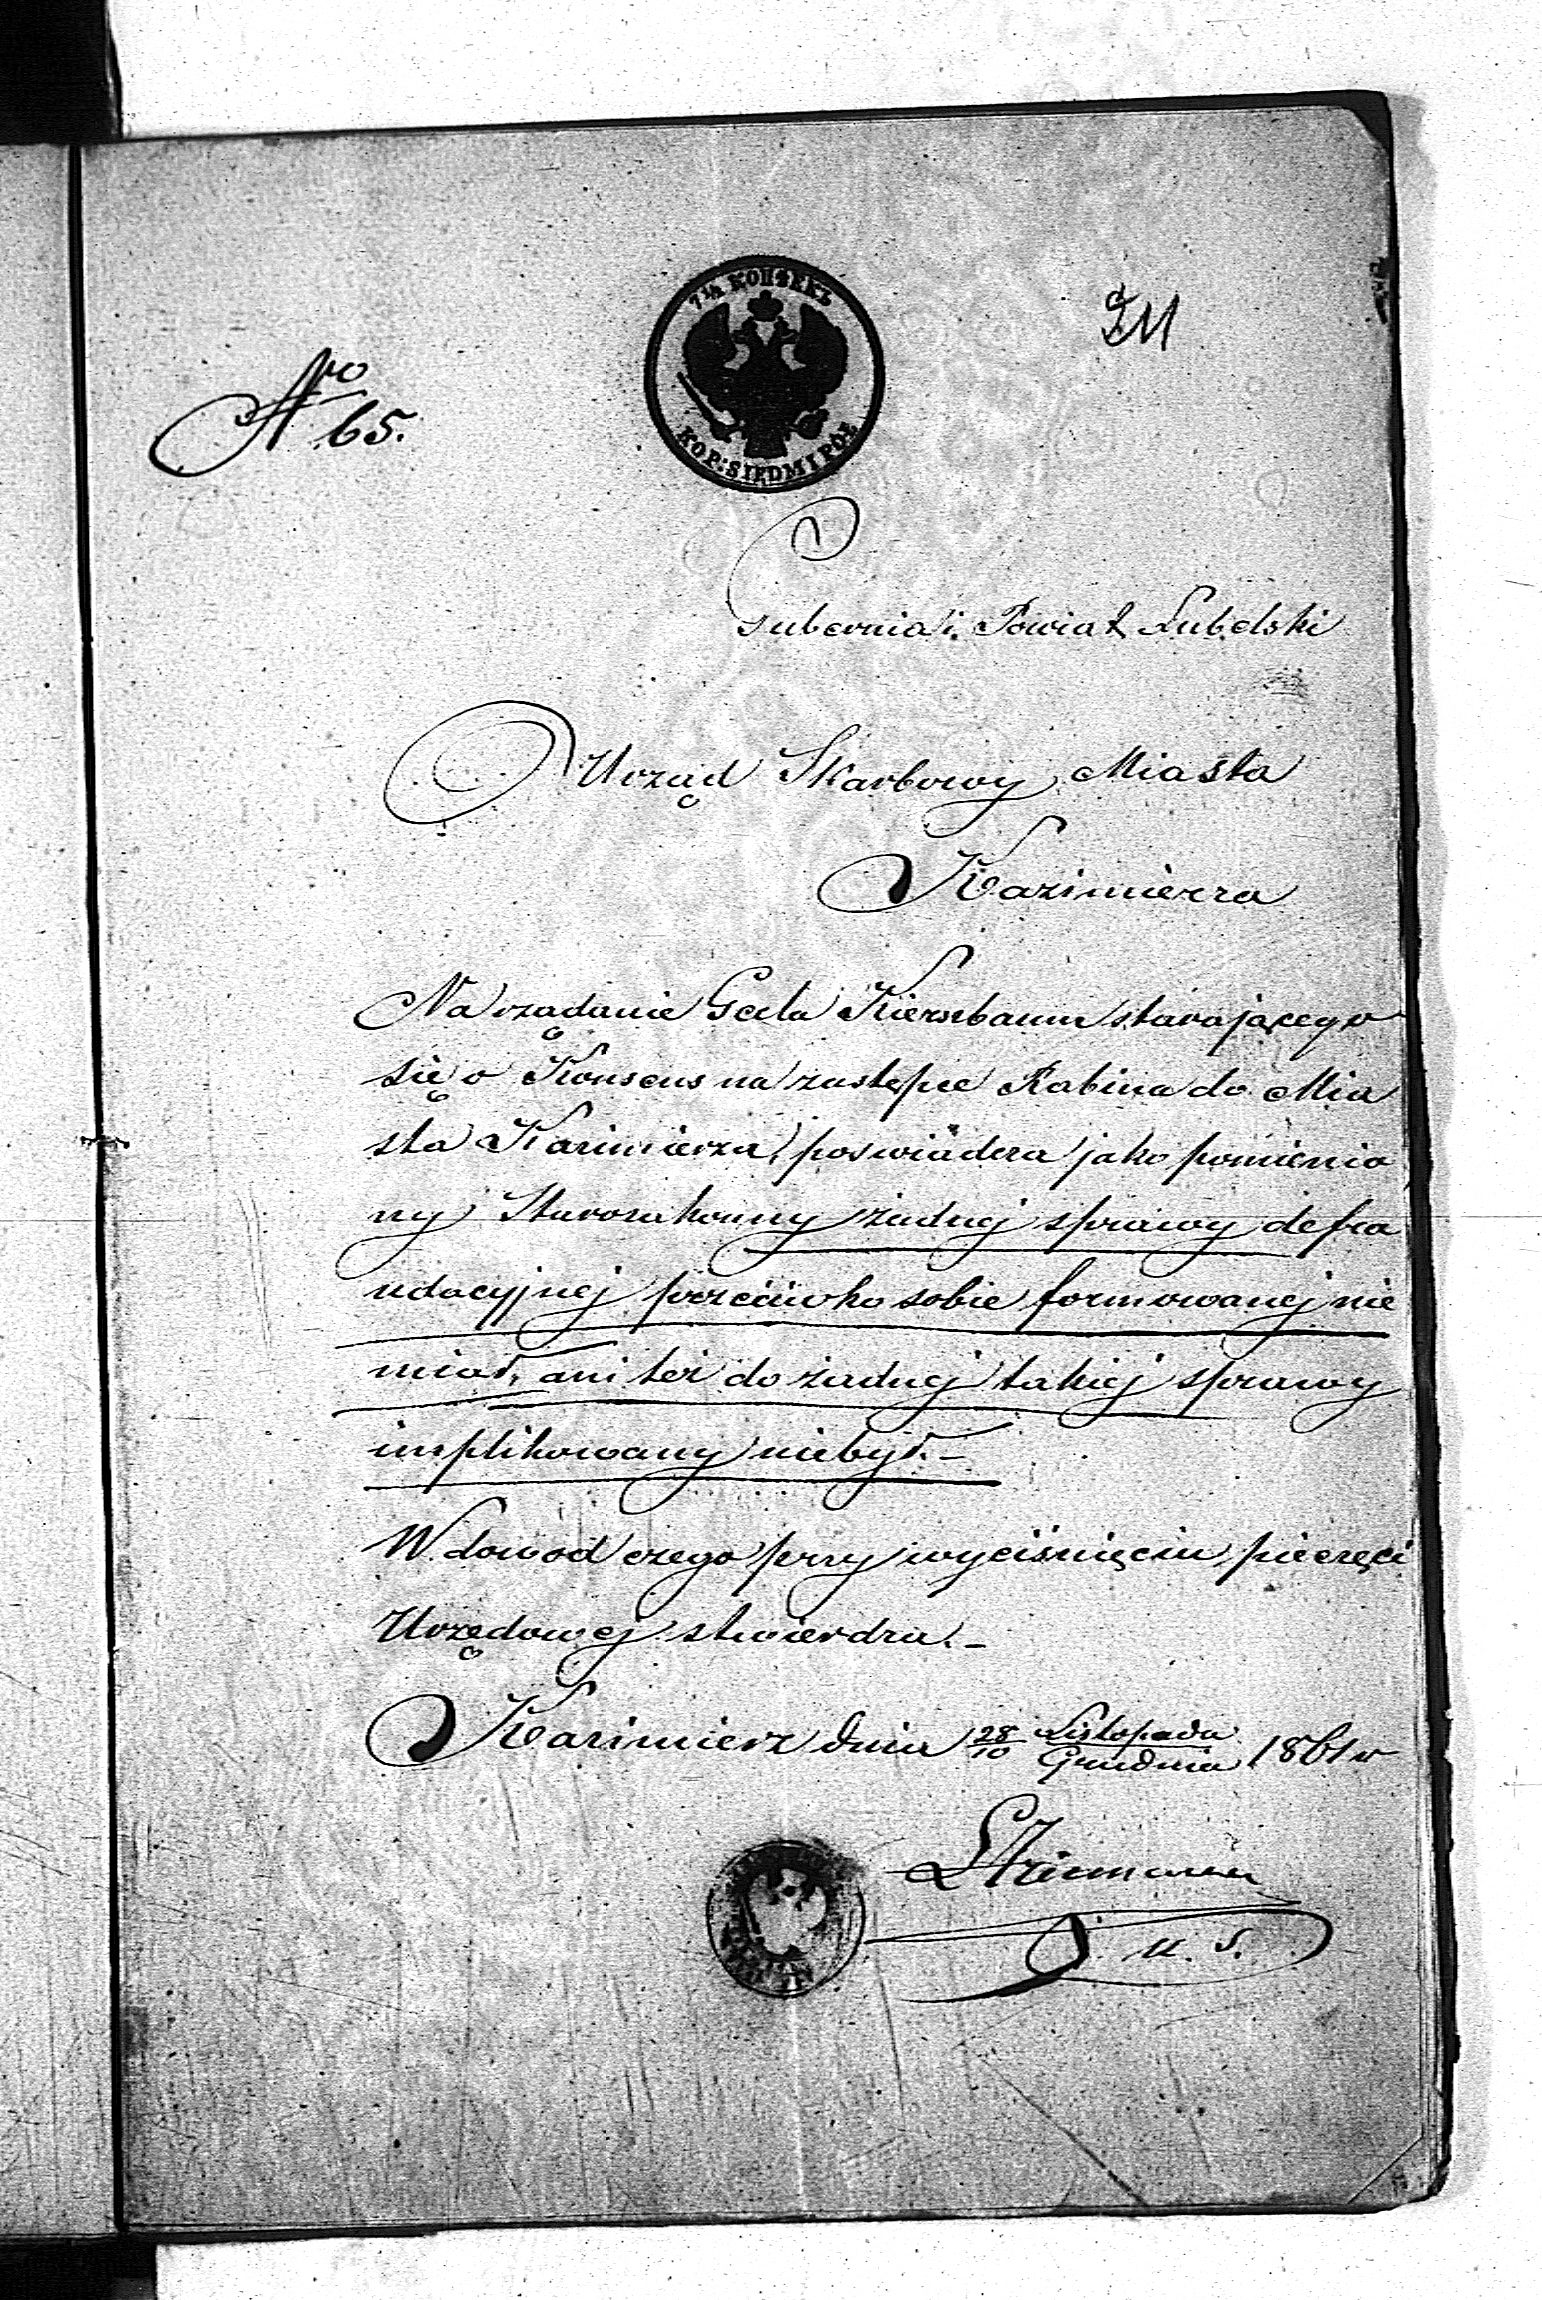 7½ КОПѢЕКЪ
KOP: SIEDM I PÓŁ
211
Nro 65.
Gubernia i Powiat Lubelski
Urząd Skarbowy Miasta
Kazimierza
Na rządanie Gecla Kierszbaum starającego
się o Konsens na zastępce Rabina do Mia
sta Kazimierza, poswiadcza jako pomienio
ny Starozakonny żadnej sprawy defra
udacyjnej przeciwko sobie formowanej nie
miał, ani też do żadnej takiej sprawy
implikowany niebył. –
W dowód czego przy wyciśnięciu pieczęci
Urzędowej stwierdza. –
Kazimierz dnia 28/10 Listopada/Grudnia 1861 r